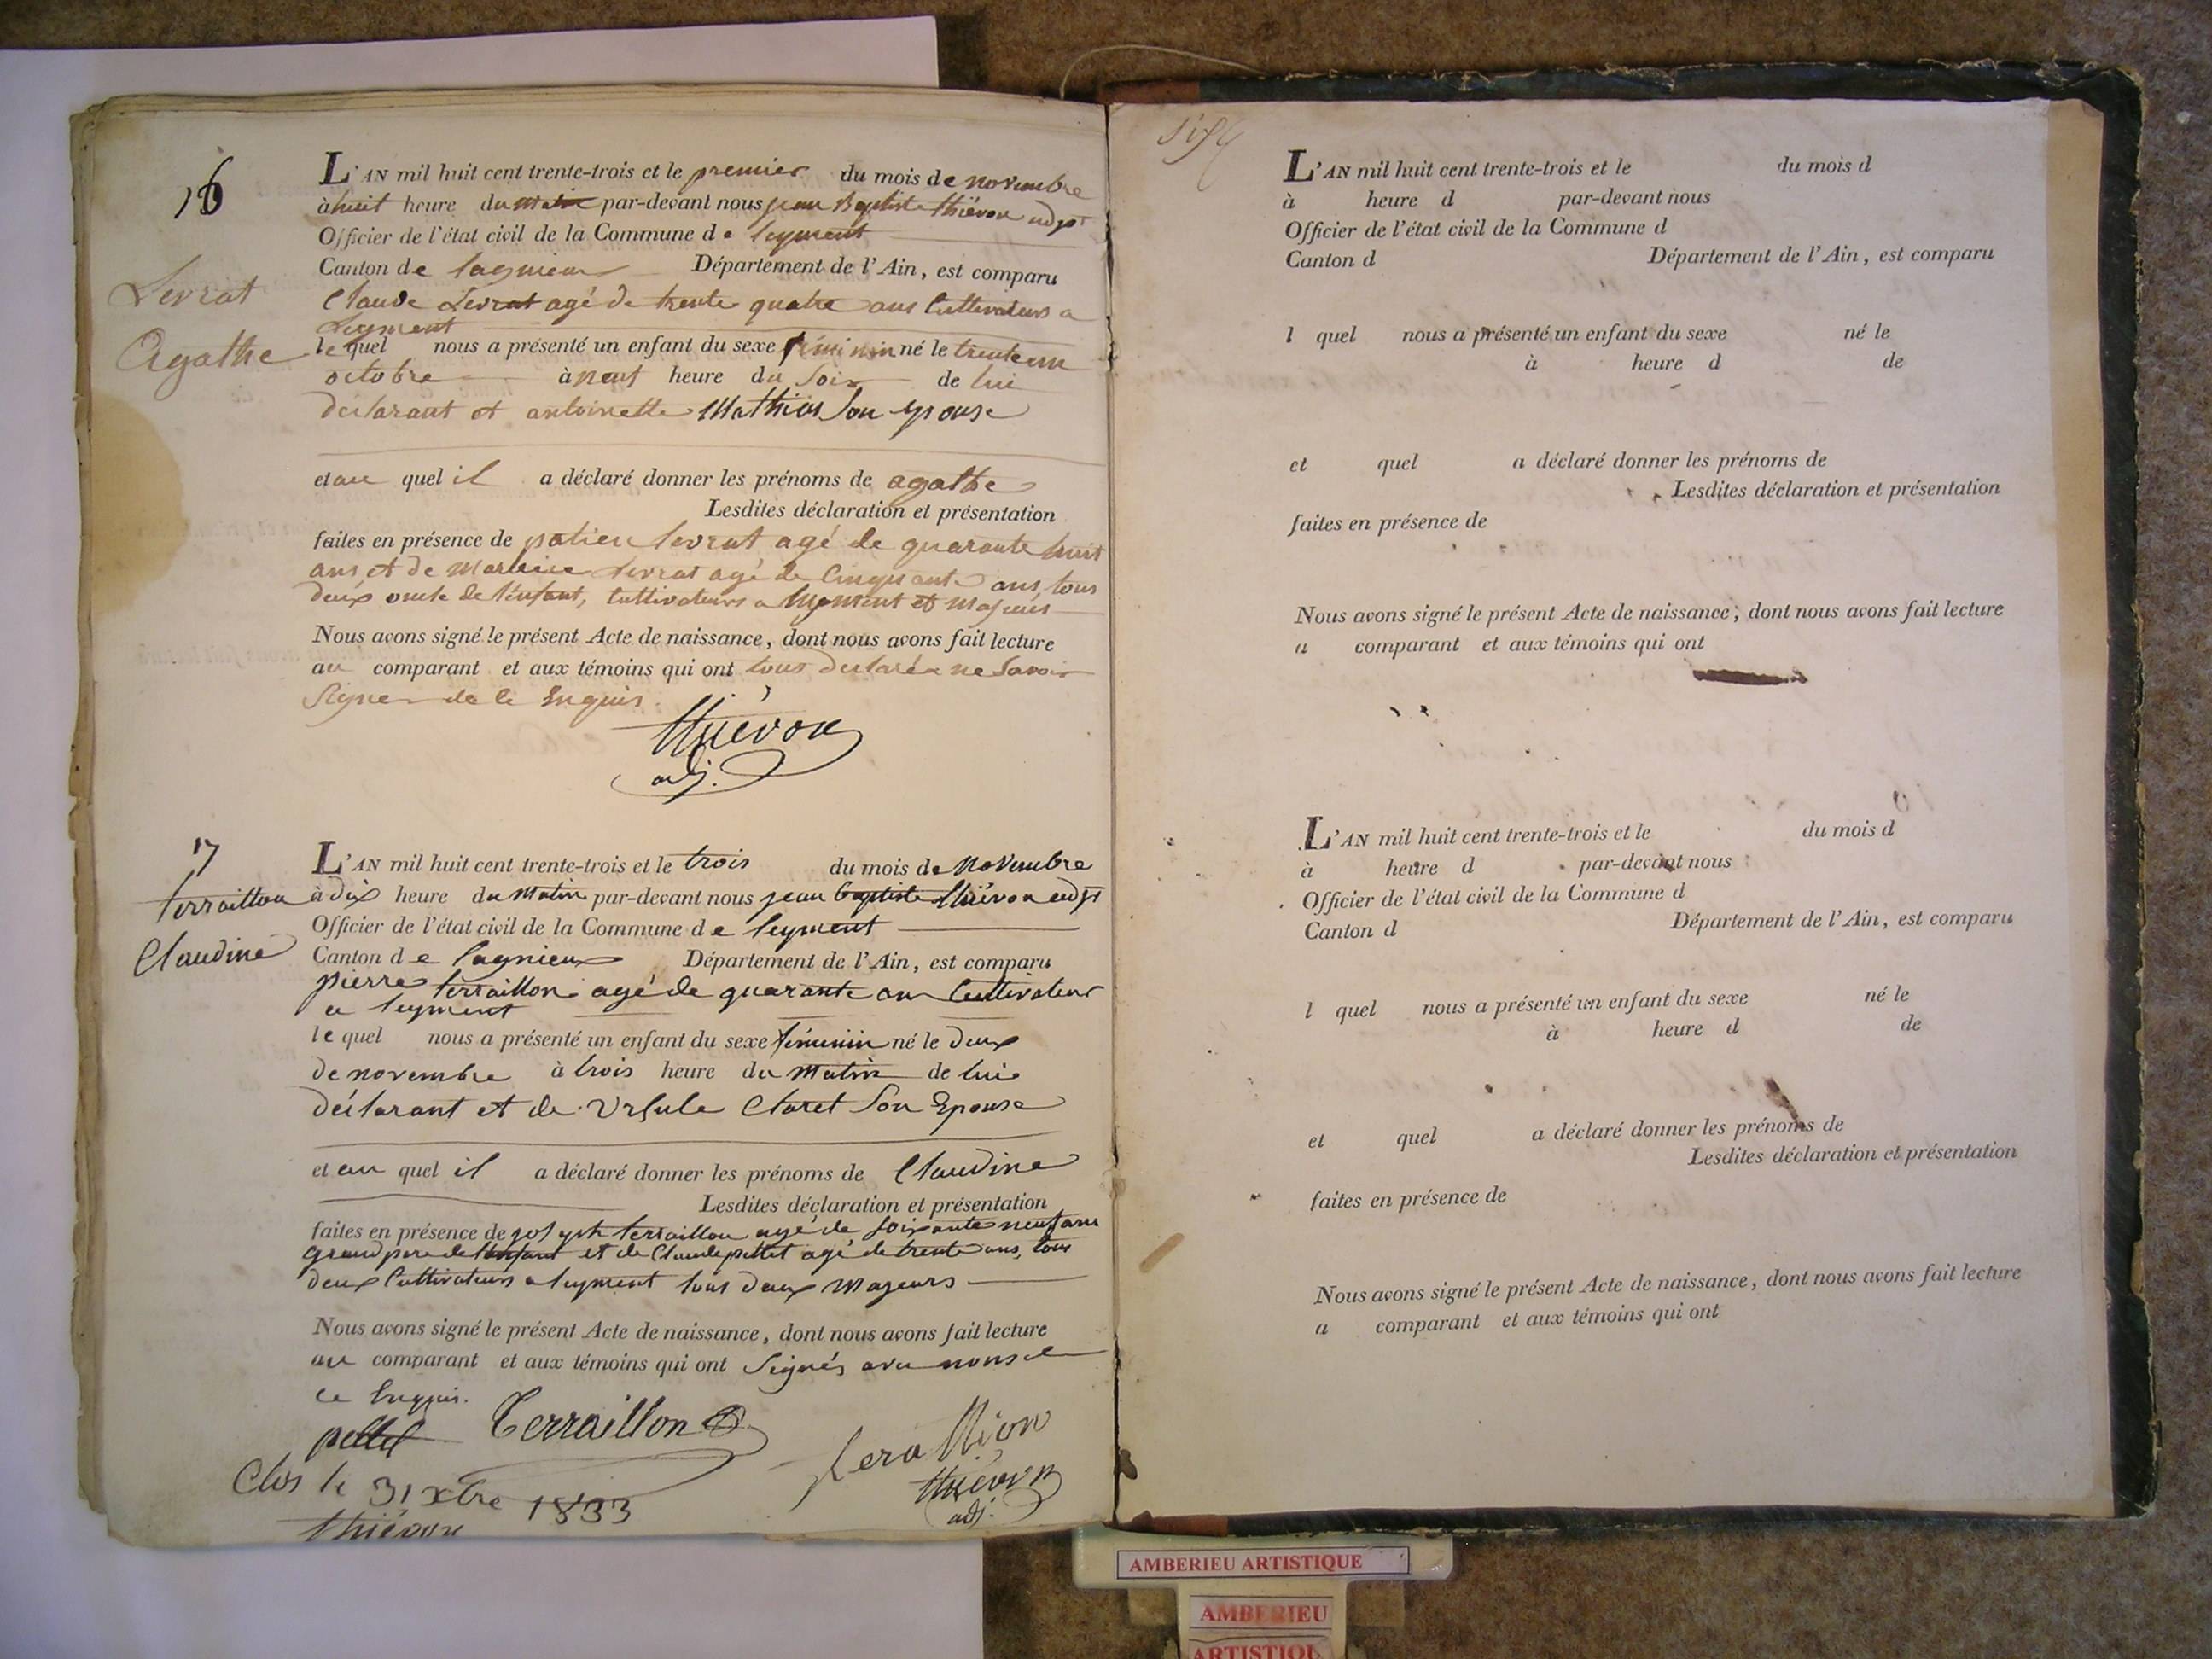 16
Levrat
Agathe
L'AN mil huit cent trente-trois et le premier du mois de novembre
à huit heure du matin par-devant nous jean Baptiste thiévon adjt
Officier de l'état civil de la Commune de leyment
Canton de lagnieux Département de l'Ain, est comparu
Claude Levrat agé de trente quatre ans Cultivateurs a
Leyment
le quel nous a présenté un enfant du sexe féminin né le trente un
octobre à neuf heure du Soir de lui
déclarant et antoinette Mathieu Son epouse
et au quel il a déclaré donner les prénoms de agathe
Lesdites déclaration et présentation
faites en présence de levrat agé de quarante huit
ans et de levrat agé de Cinquante ans, tous
deux oncle de l'enfant, Cultivateurs a leyment et Majeurs
Nous avons signé le présent Acte de naissance, dont nous avons fait lecture
au comparant et aux témoins qui ont tous declarés ne Savoir
Signer de ce Enquis.
thiévon
adj.
17
terraillon
Claudine
L'AN mil huit cent trente-trois et le trois du mois de Novembre
à dix heure du Matin par-devant nous jean baptiste thiévon adjt
Officier de l'état civil de la Commune de leyment
Canton de lagnieux Département de l'Ain, est comparu
pierre terraillon agé de quarante an Cultivateur
a leyment
le quel nous a présenté un enfant du sexe féminin né le deux
de novembre à trois heure du Matin de lui
déclarant et de Ursule Claret Son Epouse
et au quel il a déclaré donner les prénoms de Claudine
Lesdites déclaration et présentation
faites en présence de josyph terraillon agé de soixante neuf ans
grand pere de l'enfant et de Claude pellet agé de trente ans, tous
deux Cultivateurs a leyment tous deux Majeurs
Nous avons signé le présent Acte de naissance, dont nous avons fait lecture
au comparant et aux témoins qui ont Signés avec nous
ce Enquis.
pellet Terraillon terallion
thiévon
adj.
Clos le 31 xbre 1833
thiévon
L'AN mil huit cent trente-trois et le du mois d
à heure d par-devant nous
Officier de l'état civil de la Commune d
Canton d Département de l'Ain, est comparu
l quel nous a présenté un enfant du sexe né le
à heure d de
et quel a déclaré donner les prénoms de
Lesdites déclaration et présentation
faites en présence de
Nous avons signé le présent Acte de naissance, dont nous avons fait lecture
a comparant et aux témoins qui ont
L'AN mil huit cent trente-trois et le du mois d
à heure d par-devant nous
Officier de l'état civil de la Commune d
Canton d Département de l'Ain, est comparu
l quel nous a présenté un enfant du sexe né le
à heure d de
et quel a déclaré donner les prénoms de
Lesdites déclaration et présentation
faites en présence de
Nous avons signé le présent Acte de naissance, dont nous avons fait lecture
a comparant et aux témoins qui ont
AMBERIEU ARTISTIQUE
AMBERIEU
ARTISTIQU